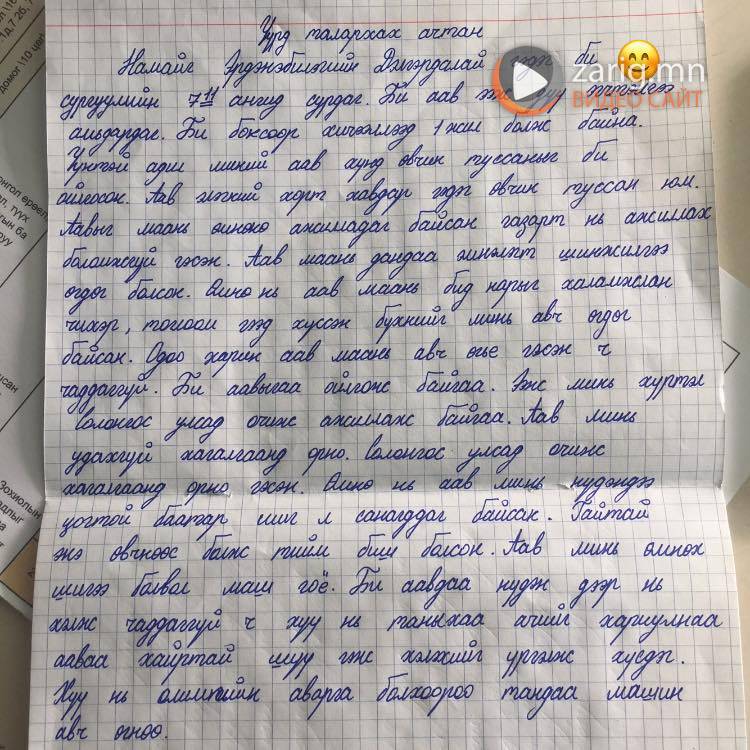 Үүрд талархах ачтан
Намайг Эрдэнэбилэгийн Дэлгэрдалай гэдэг би
zarig.mn
ВИДЕО САЙТ
сургуулийн 7 11 ангид сурдаг. Би аав ээж дүү
амьдардаг. Би боксоор хичээллээд 1 жил болж байна.
Үүнтэй адил миний аав хүнд өвчин туссаныг би
ойлгосон. Аав элэгний хорт хавдар гэдэг өвчин туссан юм.
Аавыг маань өмнө нь ажилладаг байсан газарт нь ажиллах
боломжгүй гэсэн. Аав маань дандаа эмнэлэгт шинжилгээ
өгдөг болсон. Өмнө нь аав маань бид нарыг халамжлан
чихэр, тоглоом гээд хүссэн бүхнийг минь авч өгдөг
байсан. Одоо харин аав маань авч өгье гэсэн ч
чаддаггүй. Би аавыгаа ойлгож байгаа. Ээж минь хүртэл
Солонгос улсад очиж ажиллаж байгаа. Аав минь
удахгүй хагалгаанд орно. Солонгос улсад очиж
хагалгаанд орно гэсэн. Өмнө нь аав минь нүдэндээ
цогтой баатар шиг л санагддаг байсан. Гайтай
энэ өвчнөөс болж тийм биш болсон. Аав минь өмнөх
шигээ болвол маш гоё. Би аавдаа нүдэн дээр нь
хэлж чаддаггүй ч хүү нь таныхаа ачийг хариулнаа
ааваа хайртай шүү гэж хэлэхийг үргэлж хүсдэг.
Хүү нь олимпийн аварга болхоороо тандаа машин
авч өгнөө.